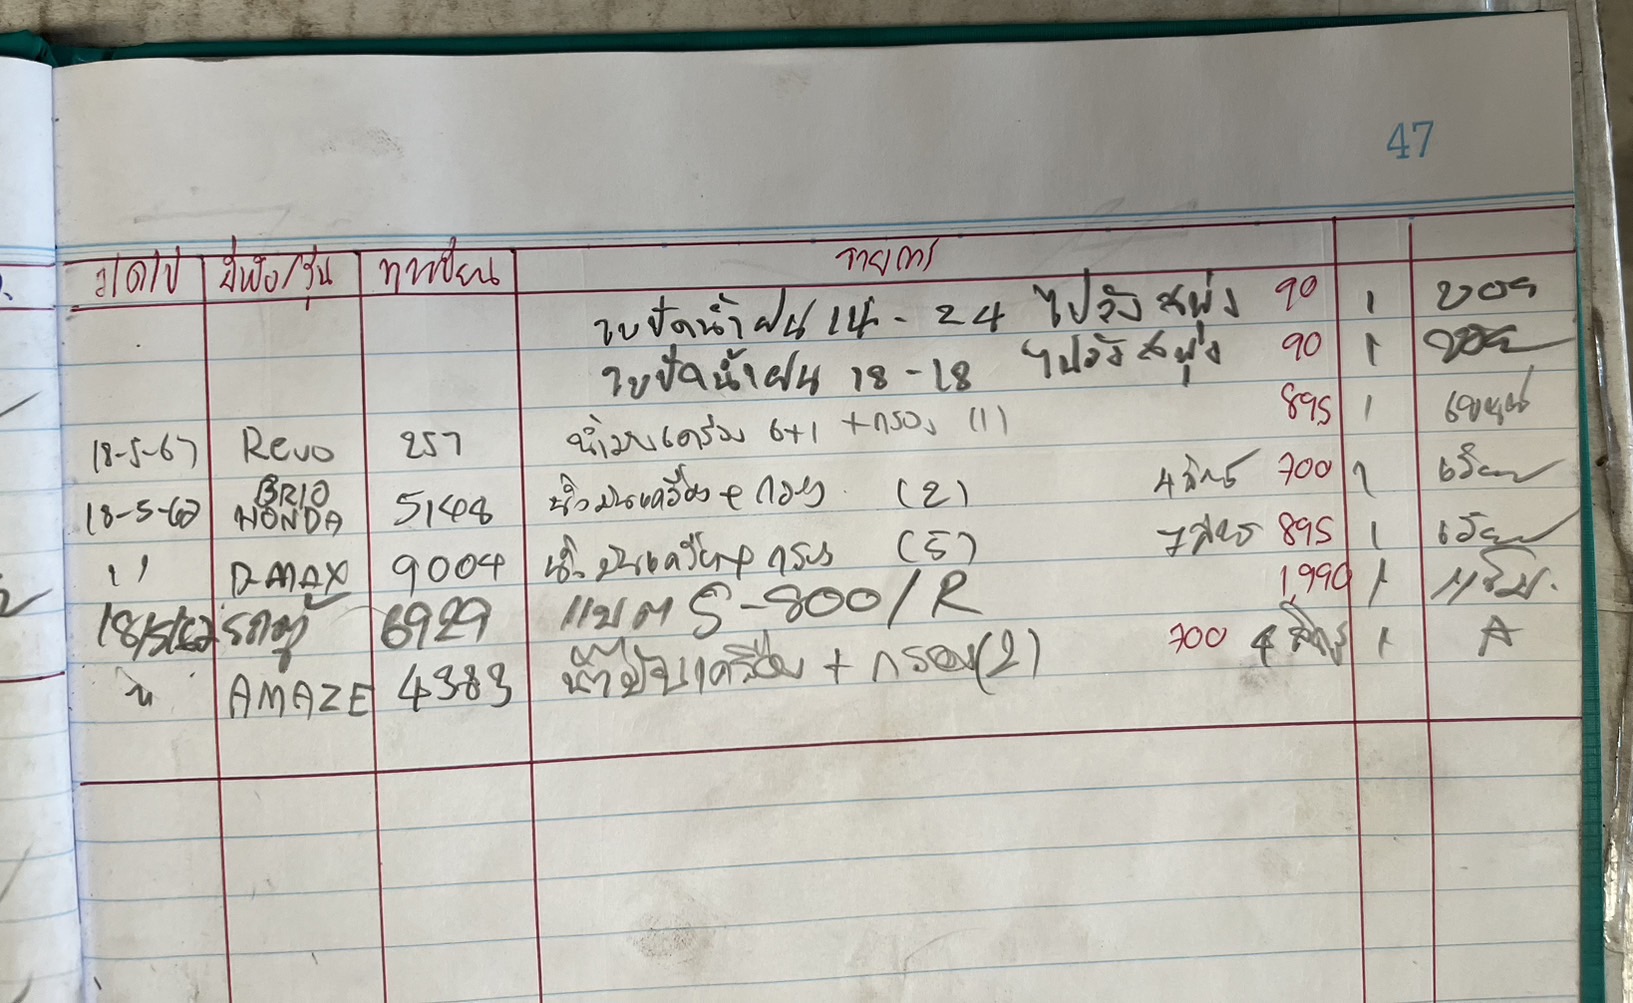 47
ว/ด/ป ยี่ห้อ/รุ่น ทะเบียน รายการ
ใบปัดน้ำฝน 14 - 24 ไปวังสพุ่ง 90 1 บอย
ใบปัดน้ำฝน 18 - 18 ไปวังสพุ่ง 90 1
18-5-67 Revo 257 น้ำมันเครื่อง 6+1 + กรอง (1) 895 1
18-5-67 BRIO HONDA 5148 น้ำมันเครื่อง + กรอง (2) 4 ลิตร 700 1
" D-MAX 9004 น้ำมันเครื่อง + กรอง (5) 7 ลิตร 895 1
18/5/67 รถตู้ 6929 แบต S-800/R 1,990 1
" AMAZE 4383 น้ำมันเครื่อง + กรอง (2) 700 4 ลิตร 1 A